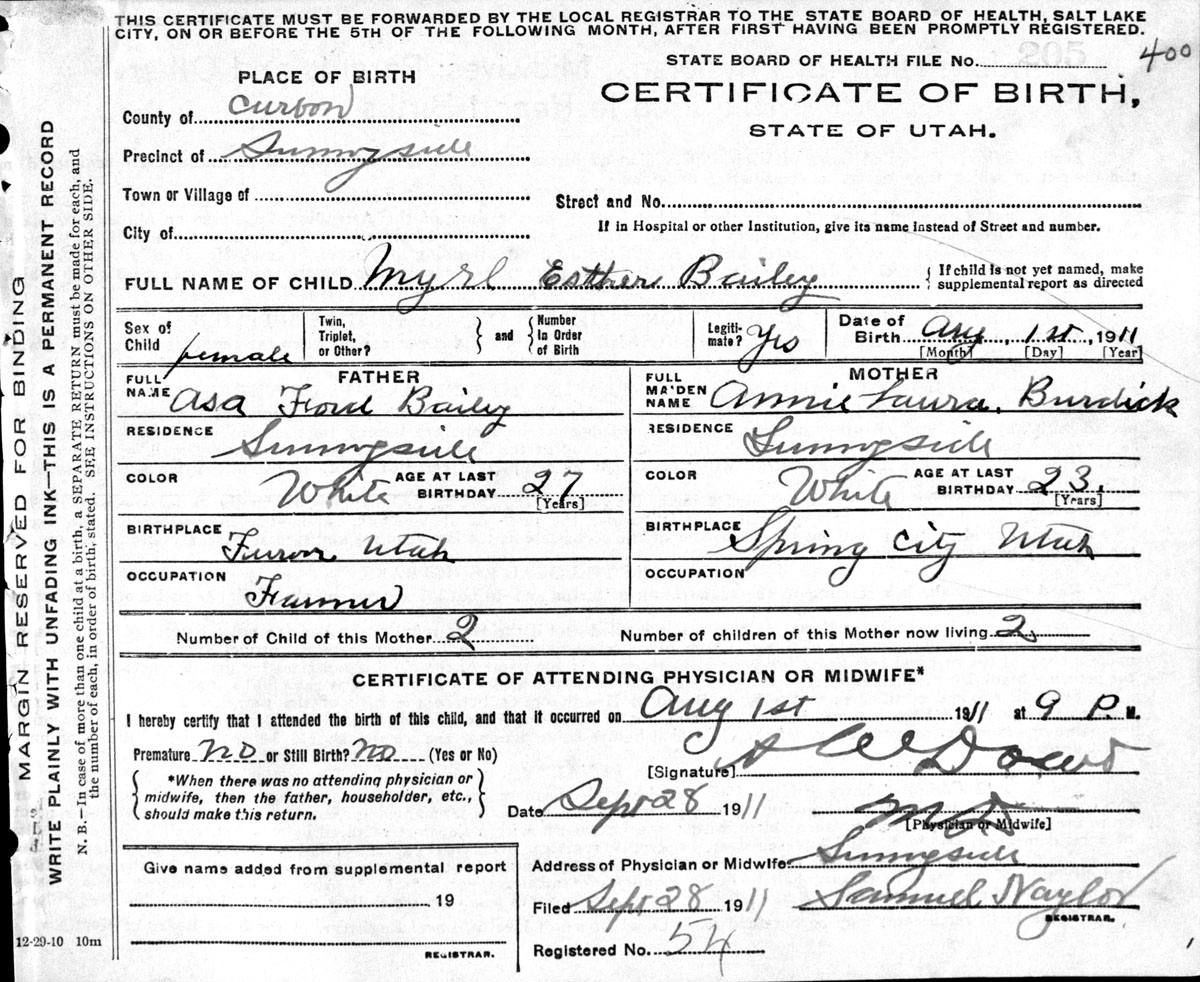 THIS CERTIFICATE MUST BE FORWARDED BY THE LOCAL REGISTRAR TO THE STATE BOARD OF HEALTH, SALT LAKE
CITY, ON OR BEFORE THE 5TH OF THE FOLLOWING MONTH, AFTER FIRST HAVING BEEN PROMPTLY REGISTERED.
STATE BOARD OF HEALTH FILE No. 400
PLACE OF BIRTH
CERTIFICATE OF BIRTH,
STATE OF UTAH.
County of Curbon
Precinct of Sunnyside
Town or Village of
Street and No.
City of
If in Hospital or other Institution, give its name instead of Street and number.
FULL NAME OF CHILD Myrl Esther Bailey { If child is not yet named, make
supplemental report as directed
Sex of Child female Twin, Triplet, or Other? } and { Number In Order of Birth Legiti-mate? Yes Date of Birth Aug 1st, 1911
[Month] [Day] [Year]
FATHER MOTHER
FULL NAME Asa Ford Bailey FULL MAIDEN NAME Annie Laura Burdick
RESIDENCE Sunnyside RESIDENCE Sunnyside
COLOR White AGE AT LAST BIRTHDAY 27 [Years] COLOR White AGE AT LAST BIRTHDAY 23 [Years]
BIRTHPLACE Furon Utah BIRTHPLACE Spring City Utah
OCCUPATION Farmer OCCUPATION
Number of Child of this Mother 2 Number of children of this Mother now living 2
CERTIFICATE OF ATTENDING PHYSICIAN OR MIDWIFE*
I hereby certify that I attended the birth of this child, and that it occurred on Aug 1st 1911 at 9 P. M.
Premature No or Still Birth? No (Yes or No)
[Signature]
{ *When there was no attending physician or
midwife, then the father, householder, etc., }
should make this return.
Date Sept 28 1911 MD
[Physician or Midwife]
Address of Physician or Midwife Sunnyside
Filed Sept 28 1911 Samuel Naylor
REGISTRAR.
Registered No. 54
Give name added from supplemental report
19
REGISTRAR.
12-29-10 10m
MARGIN RESERVED FOR BINDING
WRITE PLAINLY WITH UNFADING INK—THIS IS A PERMANENT RECORD
N. B.—In case of more than one child at a birth, a SEPARATE RETURN must be made for each, and
the number of each, in order of birth, stated. SEE INSTRUCTIONS ON OTHER SIDE.